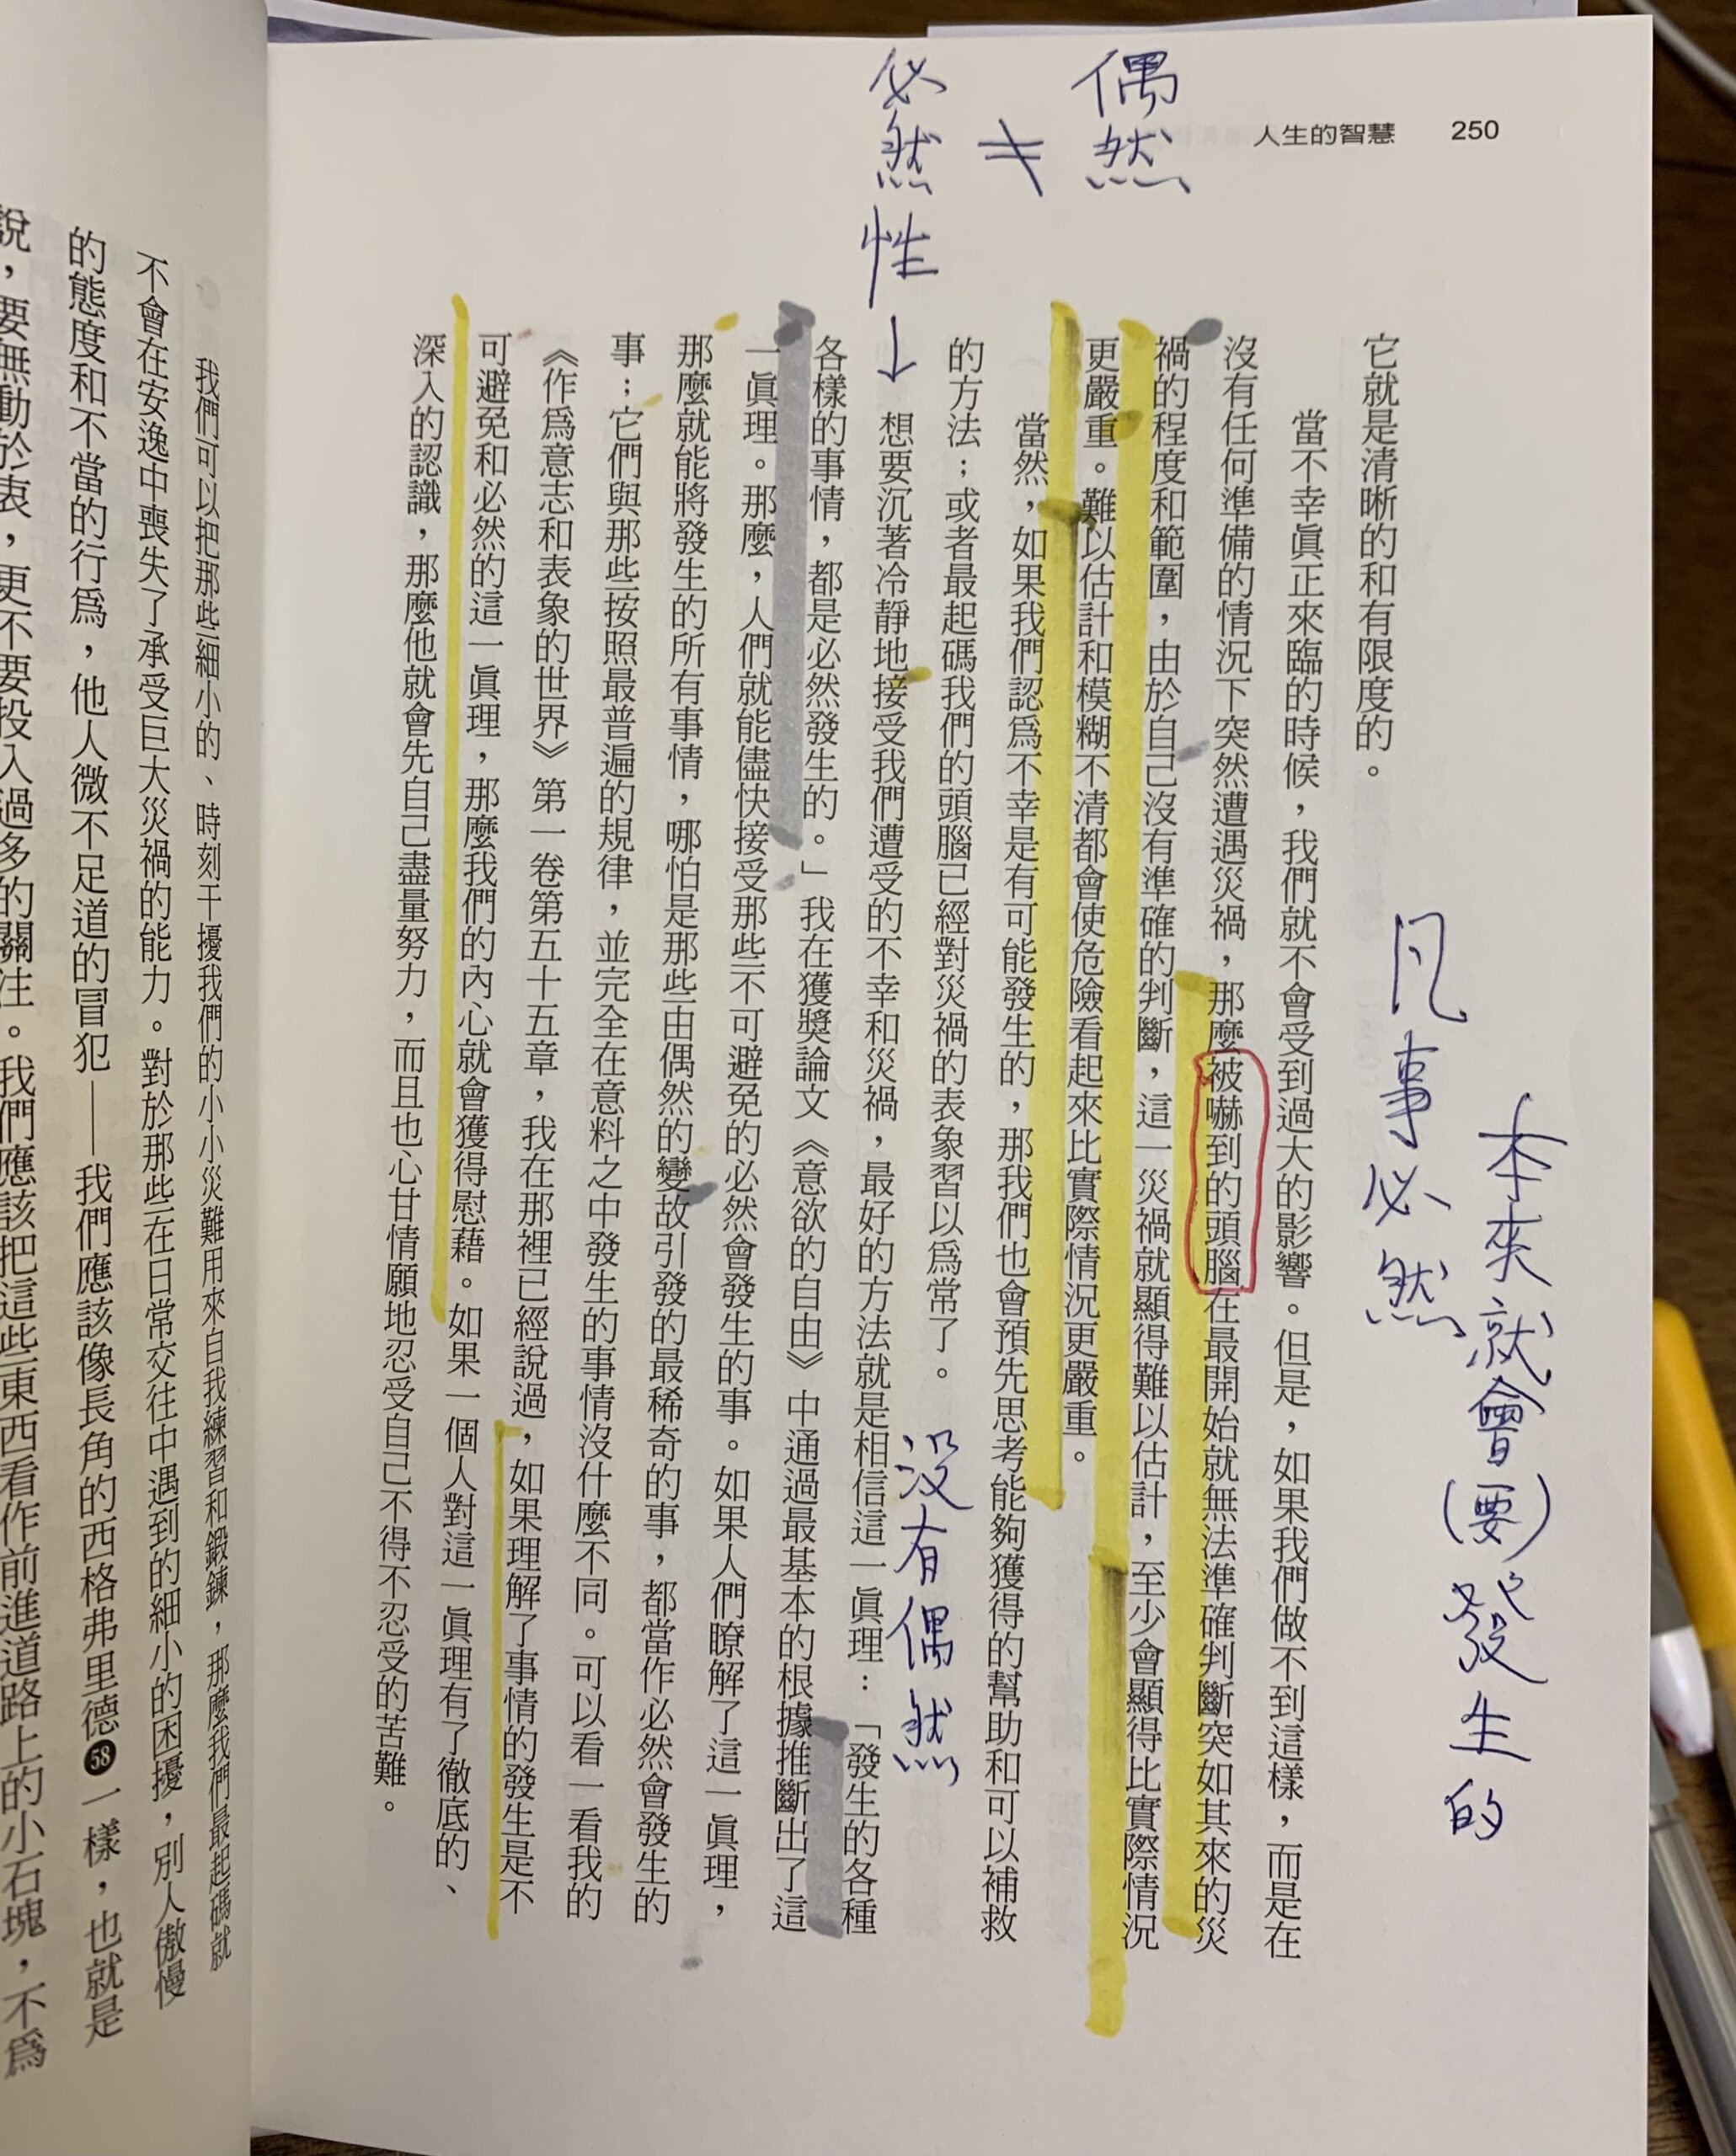 250
人生的智慧
偶然
≠
必然性
↓
本來就會(要)發生的
凡事必然
它就是清晰的和有限度的。
當不幸眞正來臨的時候，我們就不會受到過大的影響。但是，如果我們做不到這樣，而是在
沒有任何準備的情況下突然遭遇災禍，那麼被嚇到的頭腦在最開始就無法準確判斷突如其來的災
禍的程度和範圍，由於自己沒有準確的判斷，這一災禍就顯得難以估計，至少會顯得比實際情況
更嚴重。難以估計和模糊不清都會使危險看起來比實際情況更嚴重。
當然，如果我們認爲不幸是有可能發生的，那我們也會預先思考能夠獲得的幫助和可以補救
的方法；或者最起碼我們的頭腦已經對災禍的表象習以爲常了。
沒有偶然
想要沉著冷靜地接受我們遭受的不幸和災禍，最好的方法就是相信這一眞理：「發生的各種
各樣的事情，都是必然發生的。」我在獲獎論文《意欲的自由》中通過最基本的根據推斷出了這
一眞理。那麼，人們就能儘快接受那些不可避免的必然會發生的事。如果人們瞭解了這一眞理，
那麼就能將發生的所有事情，哪怕是那些由偶然的變故引發的最稀奇的事，都當作必然會發生的
事；它們與那些按照最普遍的規律，並完全在意料之中發生的事情沒什麼不同。可以看一看我的
《作爲意志和表象的世界》第一卷第五十五章，我在那裡已經說過，如果理解了事情的發生是不
可避免和必然的這一眞理，那麼我們的內心就會獲得慰藉。如果一個人對這一眞理有了徹底的、
深入的認識，那麼他就會先自己盡量努力，而且也心甘情願地忍受自己不得不忍受的苦難。
我們可以把那些細小的、時刻干擾我們的小小災難用來自我練習和鍛鍊，那麼我們最起碼就
不會在安逸中喪失了承受巨大災禍的能力。對於那些在日常交往中遇到的細小的困擾，別人傲慢
的態度和不當的行爲，他人微不足道的冒犯——我們應該像長角的西格弗里德58一樣，也就是
說，要無動於衷，更不要投入過多的關注。我們應該把這些東西看作前進道路上的小石塊，不爲